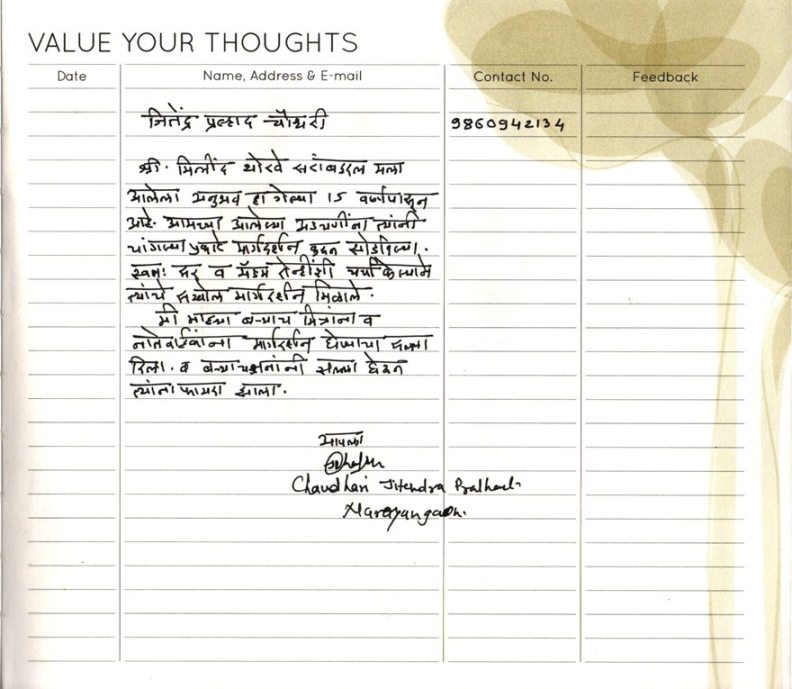 VALUE YOUR THOUGHTS
Date Name, Address & E-mail Contact No. Feedback
जितेंद्र प्रल्हाद चौधरी 9860942134
श्री. मिलींद थोरवे सरांबद्दल मला
आलेला अनुभव हा गेल्या 15 वर्षापासून
आहे. आमच्या आलेल्या अडचणींना त्यांनी
चांगल्या प्रकारे मार्गदर्शन करून सोडविल्या.
स्वतः सर व मॅडम दोन्हींशी चर्चा केल्याने
त्यांचे सखोल मार्गदर्शन मिळाले.
मी माझ्या बऱ्याच मित्रांना व
नातेवाईकांना मार्गदर्शन घेण्याचा सल्ला
दिला. व बऱ्याचजनांनी सल्ला घेऊन
त्यांना फायदा झाला.
आपला
Chaudhari Jitendra Pralhad
Narayangaon.